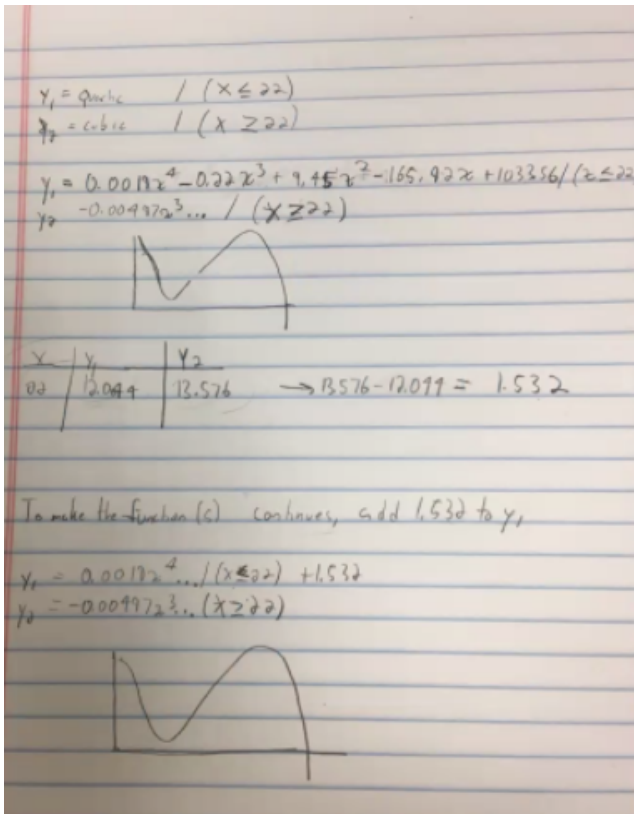 y₁ = quartic / (x ≤ 22)
y₂ = cubic / (x ≥ 22)
y₁ = 0.0018x⁴ - 0.22x³ + 9.45x² - 165.92x + 1033.56 / (x ≤ 22
y₂ -0.00497x³... / (x ≥ 22)
x y₁ y₂
22 12.044 13.576 → 13.576 - 12.044 = 1.532
To make the function (s) continues, add 1.532 to y₁
y₁ = 0.0018x⁴... / (x ≤ 22) + 1.532
y₂ = -0.00497x³... (x ≥ 22)